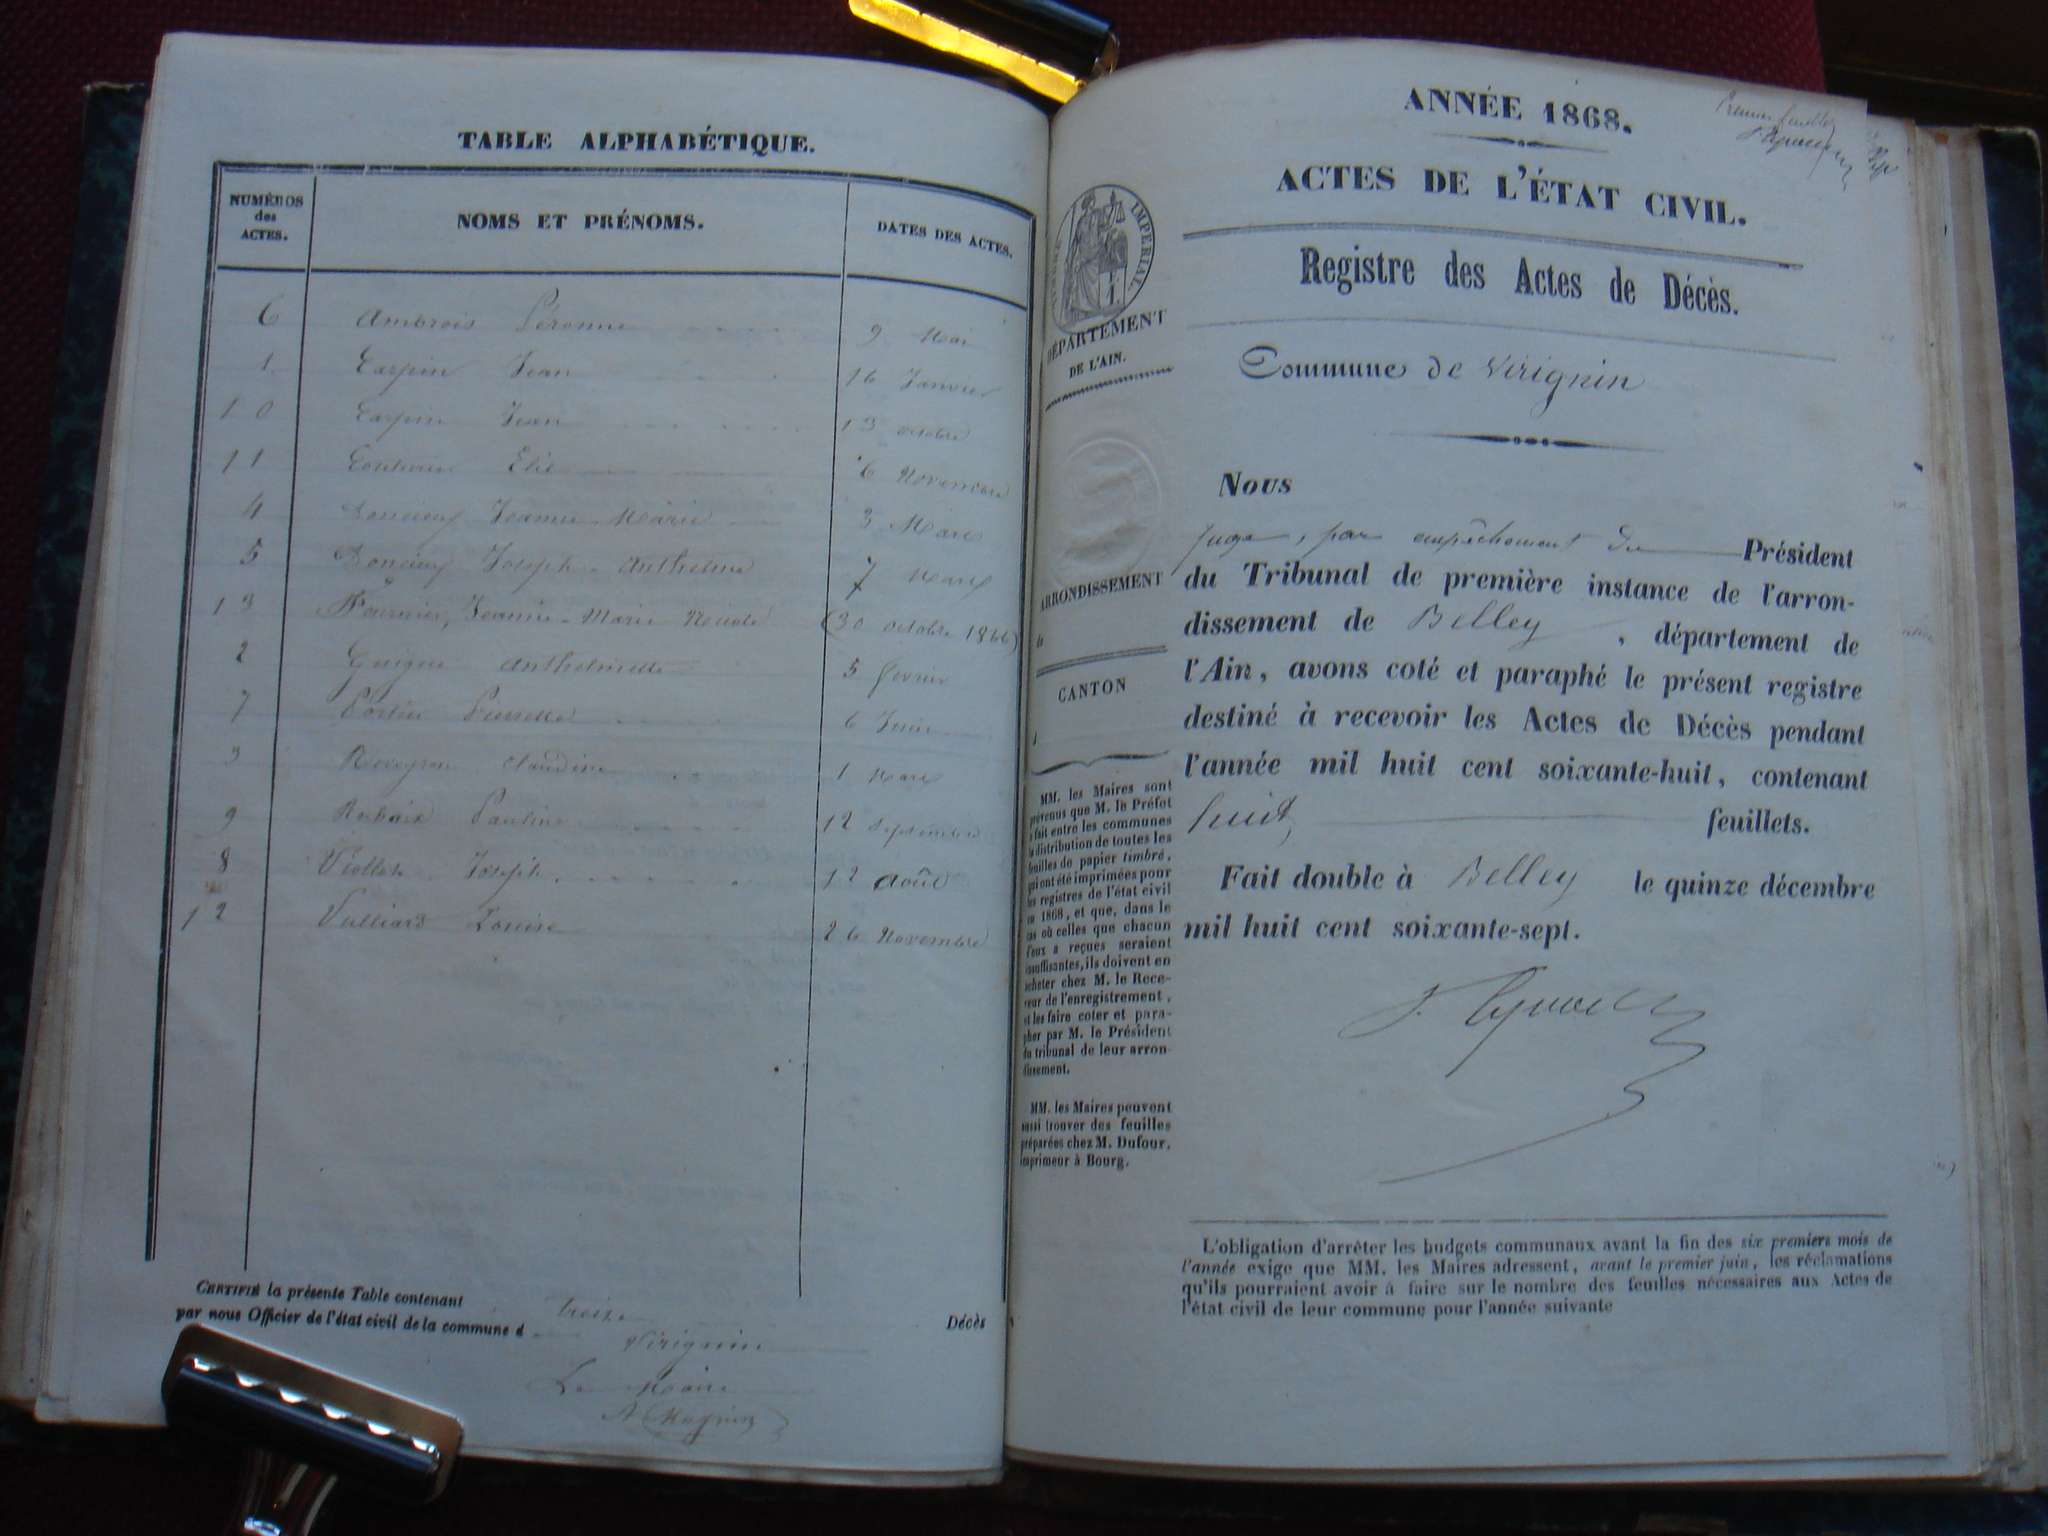 TABLE ALPHABÉTIQUE.
NUMÉROS des ACTES. NOMS ET PRÉNOMS. DATES DES ACTES.
6 Ambrois Péronne 9 Mai
1 Carpin Jean 16 Janvier
10 Carpin Jean 13 octobre
11 Elie 6 Novembre
4 Jeanne Marie 3 Mars
5 Joseph Anthelme 7 Mars
13 Fournier, Jeanne-Marie (30 octobre 1866)
2 Guigue Anthelmette 5 février
7 Pierrette 6 Juin
3 Reveyron Claudine 1 Mars
9 Pauline 12 Septembre
8 Viollet Joseph 12 Août
12 Vulliard Louise 26 Novembre
CERTIFIÉ la présente Table contenant treize Décès
par nous Officier de l'état civil de la commune d Virignin
Le Maire
ANNÉE 1868.
Premier feuillet
ACTES DE L'ÉTAT CIVIL.
Registre des Actes de Décès.
Commune de Virignin
IMPERIAL.
DÉPARTEMENT
DE L'AIN.
ARRONDISSEMENT
CANTON
MM. les Maires sont
prévenus que M. le Préfet
a fait entre les communes
la distribution de toutes les
feuilles de papier timbré,
qui ont été imprimées pour
les registres de l'état civil
en 1868, et que, dans le
cas où celles que chacun
d'eux a reçues seraient
insuffisantes, ils doivent en
acheter chez M. le Rece-
veur de l'enregistrement,
et les faire coter et para-
pher par M. le Président
du tribunal de leur arron-
dissement.
MM. les Maires peuvent
aussi trouver des feuilles
préparées chez M. Dufour,
imprimeur à Bourg.
Nous
juge, par empêchement du Président
du Tribunal de première instance de l'arron-
dissement de Belley, département de
l'Ain, avons coté et paraphé le présent registre
destiné à recevoir les Actes de Décès pendant
l'année mil huit cent soixante-huit, contenant
huit feuillets.
Fait double à Belley le quinze décembre
mil huit cent soixante-sept.
L'obligation d'arrêter les budgets communaux avant la fin des six premiers mois de
l'année exige que MM. les Maires adressent, avant le premier juin, les réclamations
qu'ils pourraient avoir à faire sur le nombre des feuilles nécessaires aux Actes de
l'état civil de leur commune pour l'année suivante